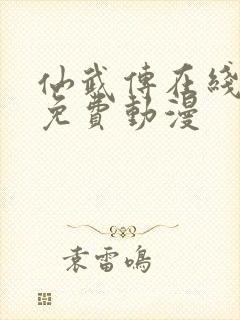 仙武傳在綫
免費動漫
袁雷鳴